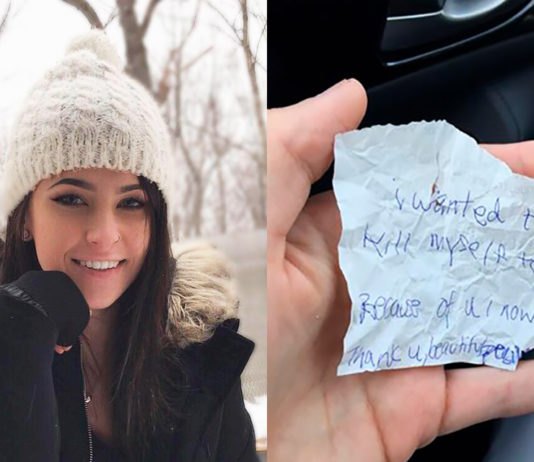 i wanted t
kill myself to
Because of u i now
thank u beautiful